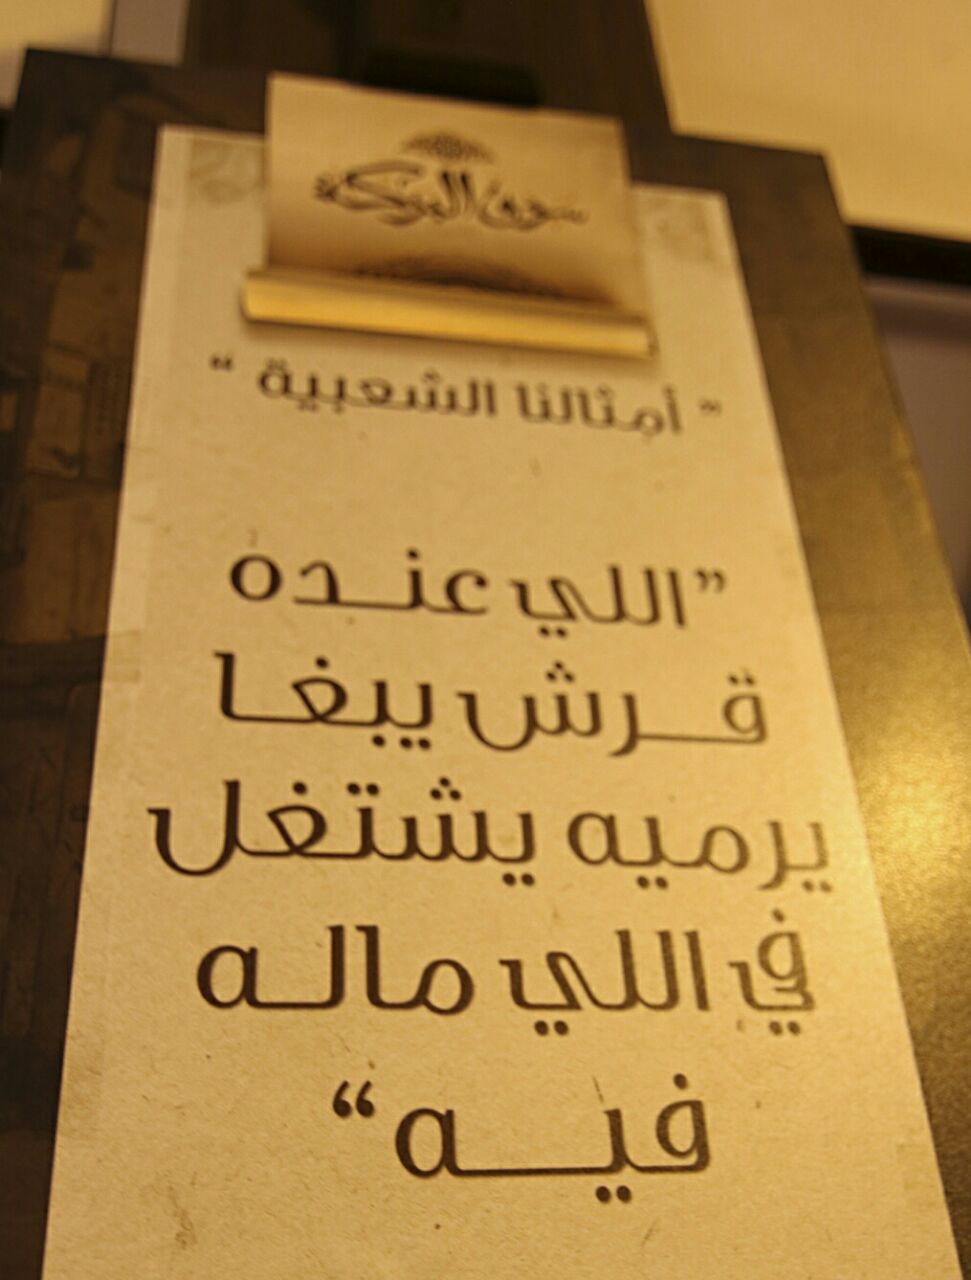 " أمثالنا الشعبية "
"اللي عنده
قرش يبغا
يرميه يشتغل
في اللي ماله
فيه"